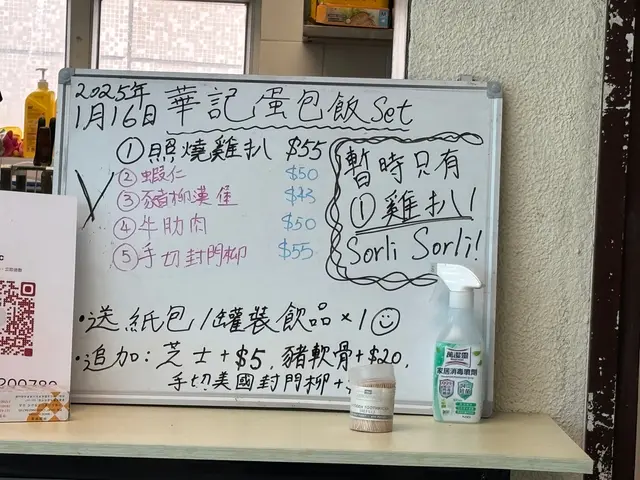 2025年
1月16日 華記蛋包飯 Set
① 照燒雞扒 $55
② 蝦仁 $50
③ 豬柳漢堡
④ 牛肋肉 $50
⑤ 手切封門柳 $55
暫時只有
① 雞扒!
Sorli Sorli!
•送紙包/罐裝飲品×1
•追加: 芝士+$5, 豬軟骨+$20,
手切美國封門柳+
家居消毒噴劑